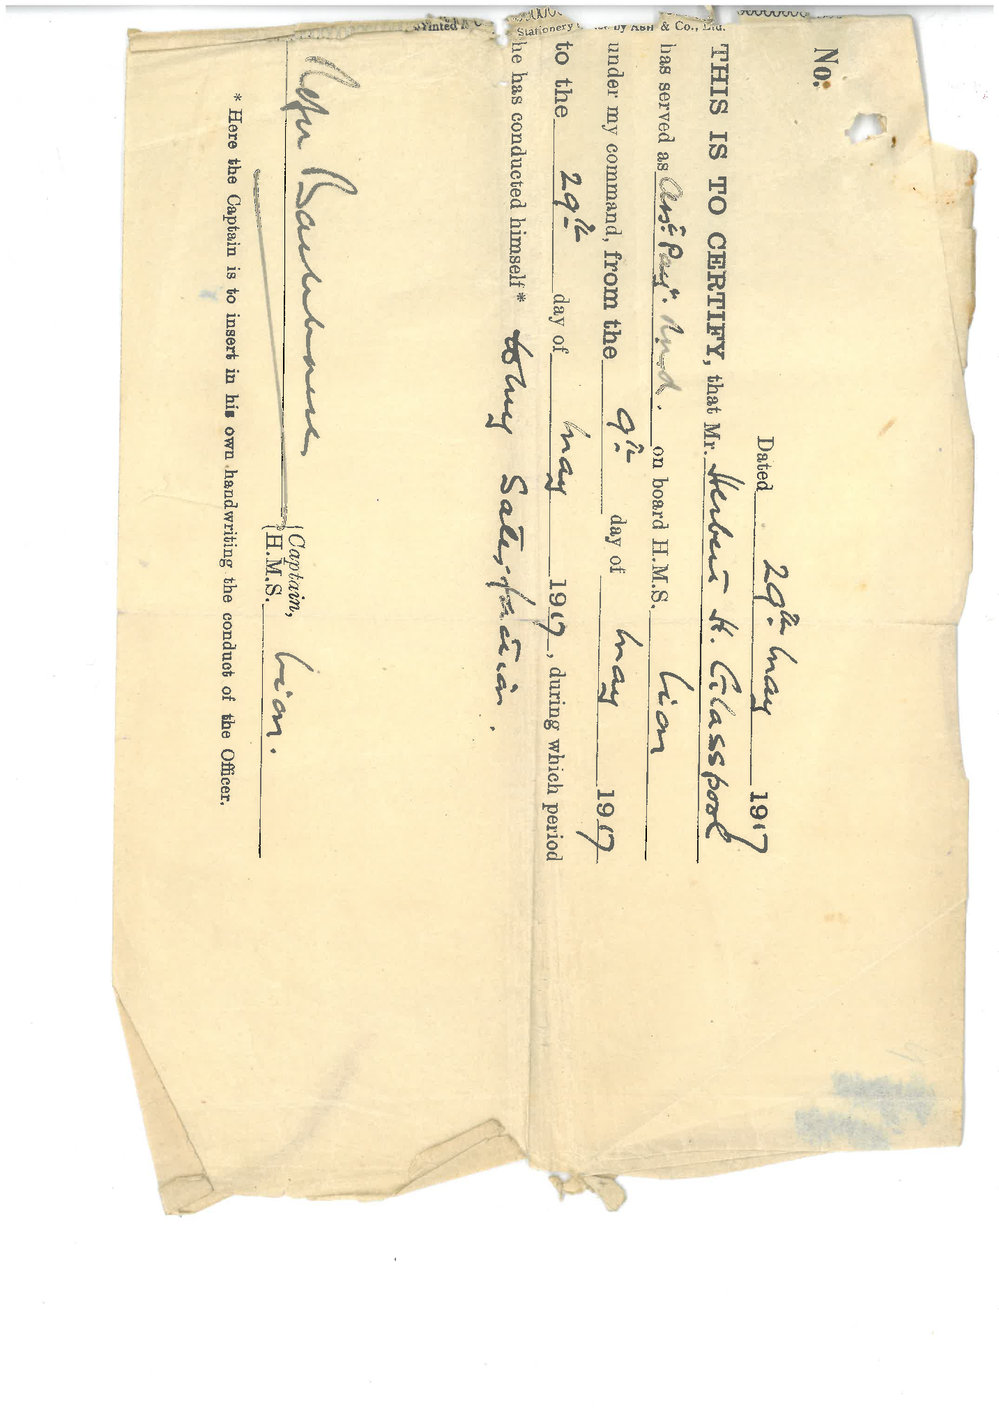 No.
Dated 29th May 1917
THIS IS TO CERTIFY, that Mr. Herbert H. Glasspool
has served as Asst. Paym. R.N.R. on board H.M.S. Lion
under my command, from the 9th day of May 1917
to the 29th day of May 1917, during which period
he has conducted himself* to my Satisfaction.
Roger Backhouse
Captain,
H.M.S. Lion.
* Here the Captain is to insert in his own handwriting the conduct of the Officer.
Stationery by & Co., Ltd.